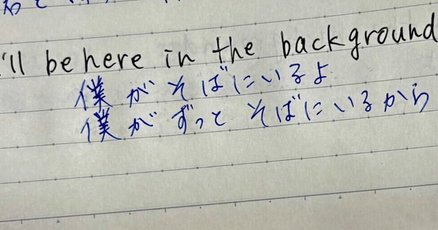 'll be here in the background
僕がそばにいるよ
僕がずっとそばにいるから